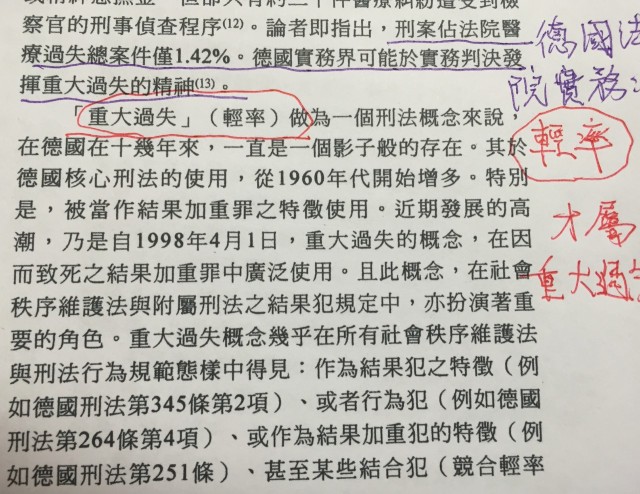 察官的刑事偵查程序(12)。論者即指出，刑案佔法院醫
療過失總案件僅1.42%。德國實務界可能於實務判決發
揮重大過失的精神(13)。
「重大過失」（輕率）做為一個刑法概念來說，
在德國在十幾年來，一直是一個影子般的存在。其於
德國核心刑法的使用，從1960年代開始增多。特別
是，被當作結果加重罪之特徵使用。近期發展的高
潮，乃是自1998年4月1日，重大過失的概念，在因
而致死之結果加重罪中廣泛使用。且此概念，在社會
秩序維護法與附屬刑法之結果犯規定中，亦扮演著重
要的角色。重大過失概念幾乎在所有社會秩序維護法
與刑法行為規範態樣中得見：作為結果犯之特徵（例
如德國刑法第345條第2項）、或者行為犯（例如德國
刑法第264條第4項）、或作為結果加重犯的特徵（例
如德國刑法第251條）、甚至某些結合犯（競合輕率
德國法
院實務
輕率
才屬
重大過失